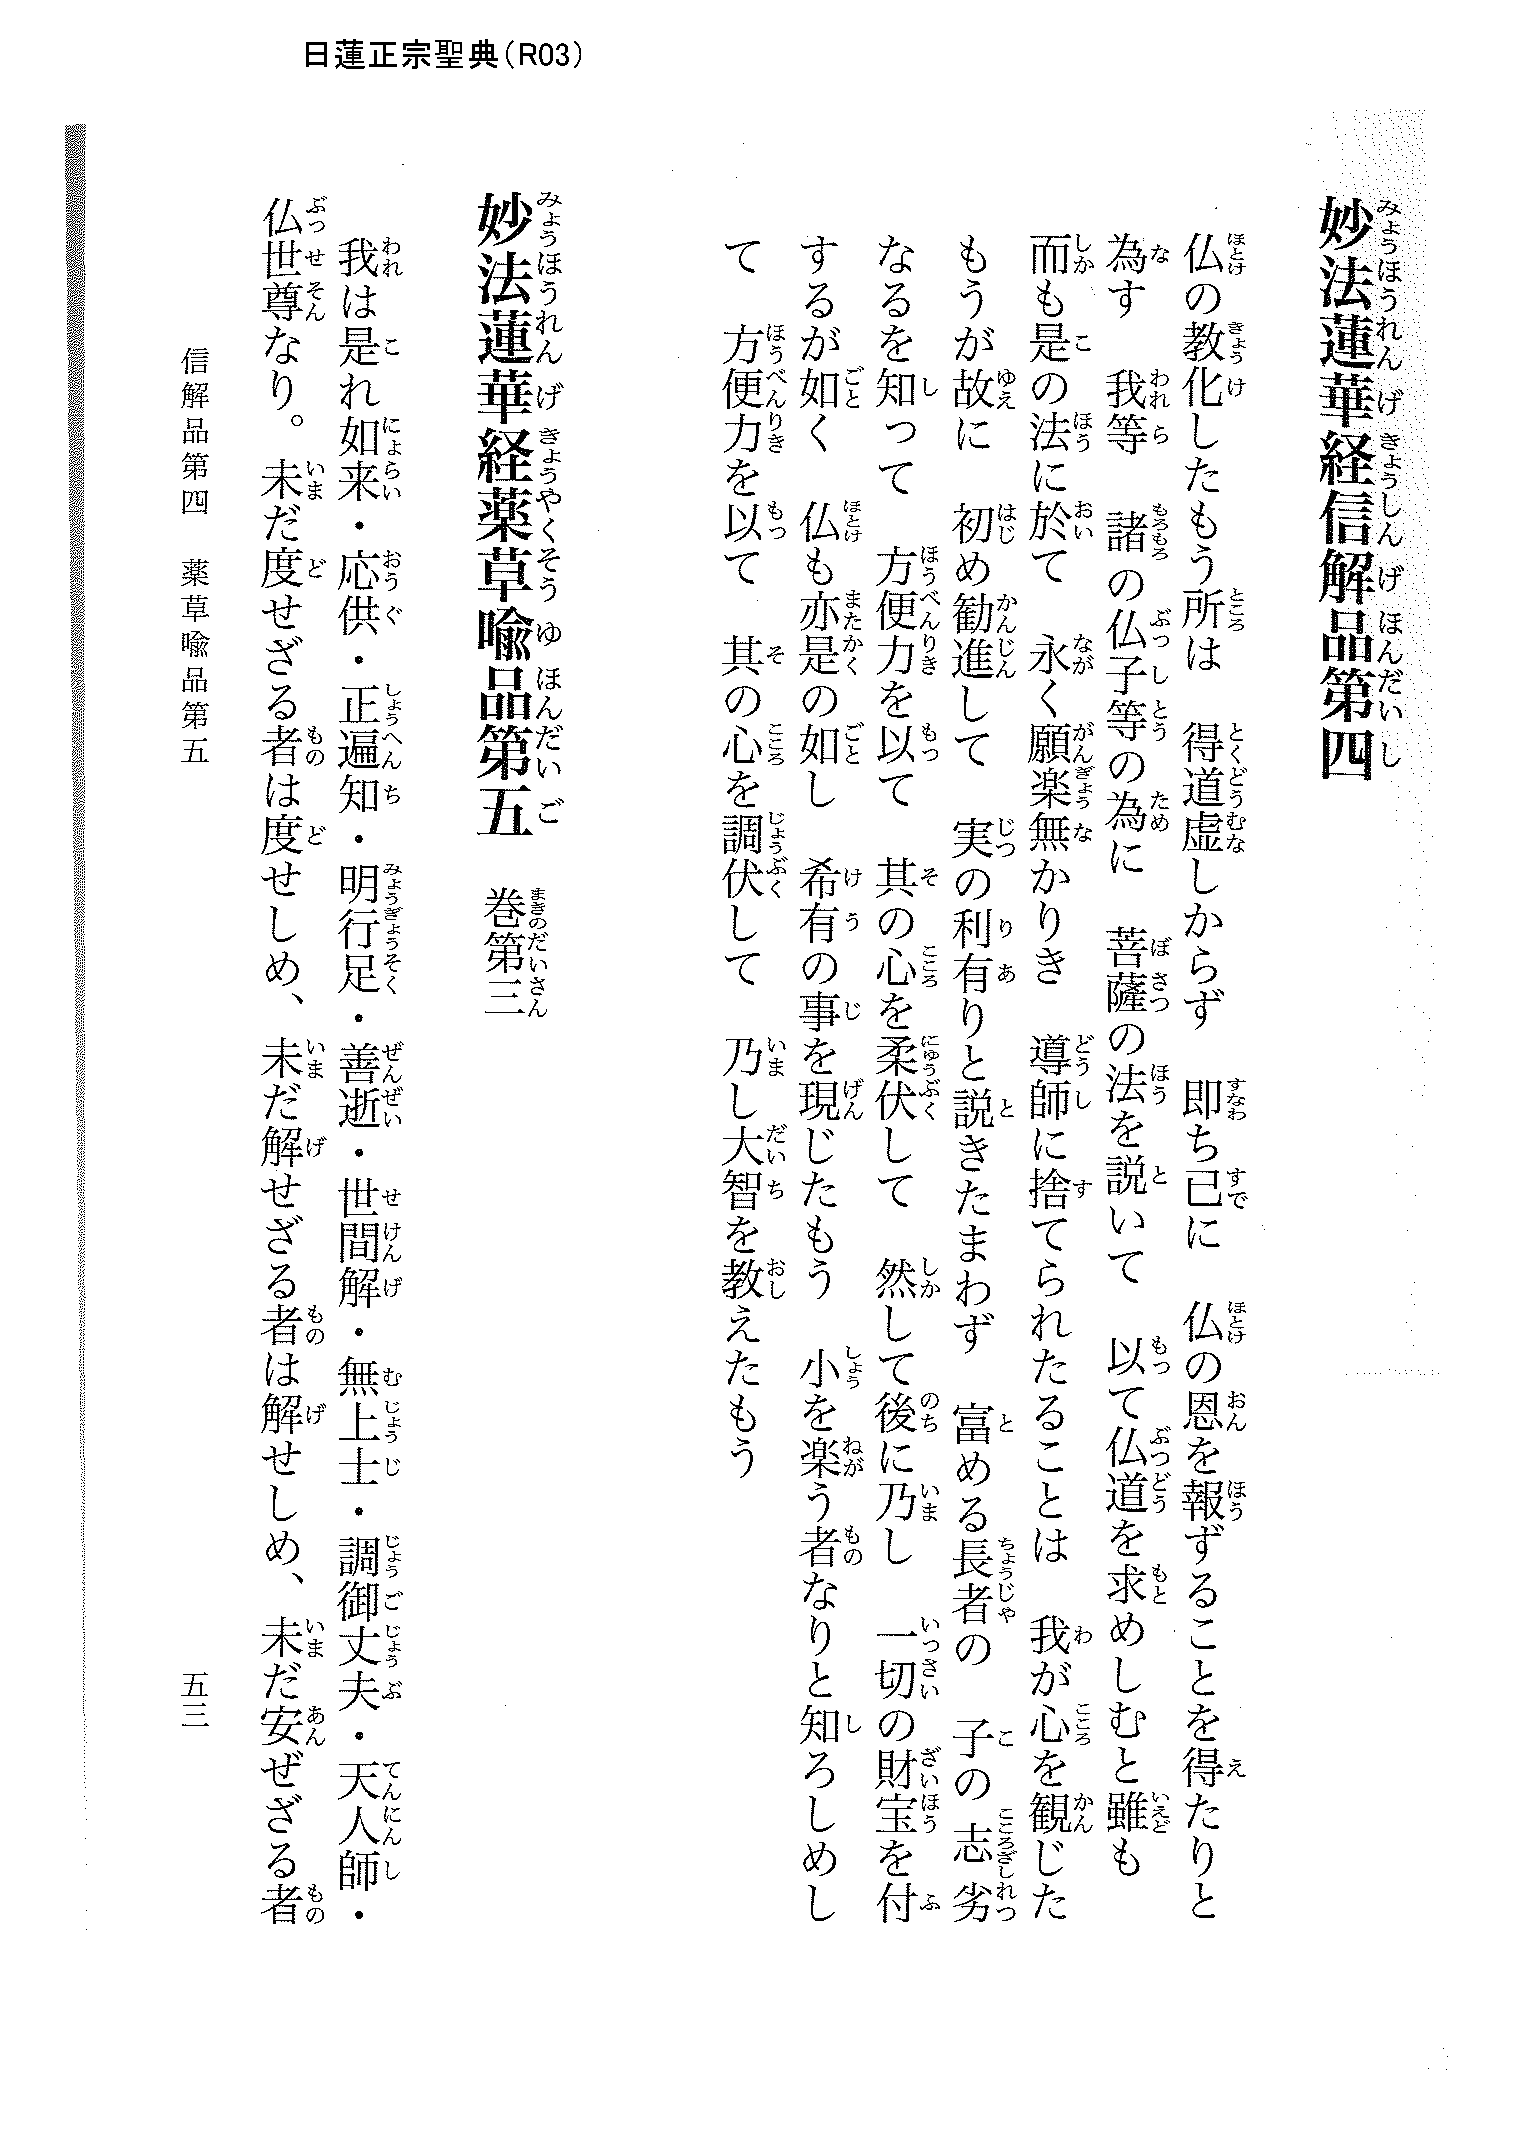 日蓮正宗聖典（R03）
妙法蓮華経信解品第四
仏の教化したもう所は　得道虚しからず　即ち已に　仏の恩を報ずることを得たりと
為す　我等　諸の仏子等の為に　菩薩の法を説いて　以て仏道を求めしむと雖も
而も是の法に於て　永く願楽無かりき　導師に捨てられたることは　我が心を観じた
もうが故に　初め勧進して　実の利有りと説きたまわず　富める長者の　子の志劣
なるを知って　方便力を以て　其の心を柔伏して　然して後に乃し　一切の財宝を付
するが如く　仏も亦是の如し　希有の事を現じたもう　小を楽う者なりと知ろしめし
て　方便力を以て　其の心を調伏して　乃し大智を教えたもう
妙法蓮華経薬草喩品第五　巻第三
我は是れ如来・応供・正遍知・明行足・善逝・世間解・無上士・調御丈夫・天人師・
仏世尊なり。未だ度せざる者は度せしめ、未だ解せざる者は解せしめ、未だ安ぜざる者
信解品第四　薬草喩品第五　五三